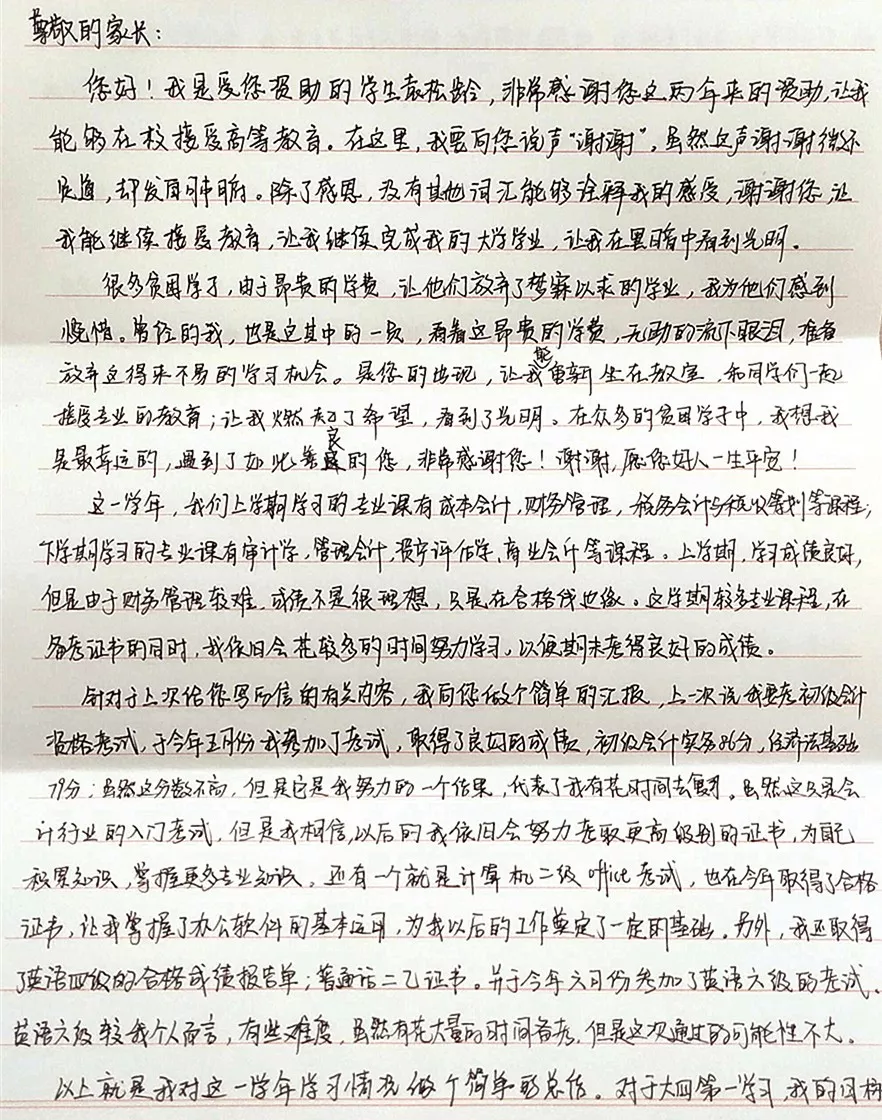 尊敬的家长：
您好！我是受您资助的学生袁松龄，非常感谢您这两年来的资助，让我
能够在校接受高等教育。在这里，我要向您说声“谢谢”，虽然这声谢谢微不
足道，却发自内心。除了感恩，没有其他词汇能够诠释我的感受，谢谢您，让
我能继续接受教育，让我继续完成我的大学学业，让我在黑暗中看到光明。
很多贫困学子，由于昂贵的学费，让他们放弃了梦寐以求的学业，我为他们感到
惋惜。曾经的我，也是这其中的一员，看着这昂贵的学费，无助的流下眼泪，准备
放弃这得来不易的学习机会。是您的出现，让我能重新坐在教室，和同学们一起
接受专业的教育；让我燃起了希望，看到了光明。在众多的贫困学子中，我想我
是最幸运的，遇到了如此善良的您，非常感谢您！谢谢，愿您好人一生平安！
这一学年，我们上学期学习的专业课有成本会计，财务管理，税务会计与税收筹划等课程；
下学期学习的专业课有审计学，管理会计，资产评估学、商业会计等课程。上学期，学习成绩良好，
但是由于财务管理较难，成绩不是很理想，只是在合格线边缘。这学期较多专业课程，在
备考证书的同时，我依旧会花较多的时间努力学习，以便期末考得良好的成绩。
针对于上次给您写的信的有关内容，我向您做个简单的汇报，上一次说我要考初级会计
资格考试，于今年五月份我参加了考试，取得了良好的成绩，初级会计实务86分，经济法基础
79分；虽然这分数不高，但是它是我努力的一个结果，代表了我有花时间去复习。虽然这只是会
计行业的入门考试，但是我相信，以后的我依旧会努力考取更高级别的证书，为自己
积累知识，掌握更多专业知识。还有一个就是计算机二级office考试，也在今年取得了合格
证书，让我掌握了办公软件的基本运用，为我以后的工作奠定了一定的基础。另外，我还取得
了英语四级的合格成绩报告单；普通话二乙证书。并于今年六月份参加了英语六级的考试，
英语六级较我个人而言，有些难度，虽然有花大量的时间备考，但是这次通过的可能性不大。
以上就是我对这一学年学习情况做个简单的总结。对于大四第一学习，我的目标